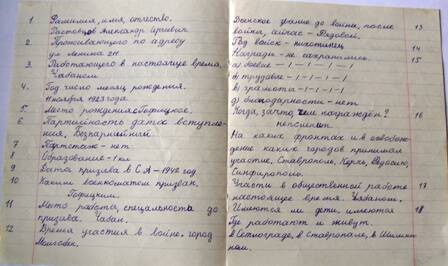 1. Фамилия, имя, отчество.
Ростовцов Александр Ильич.
2. Проживающего по адресу
ул Ленина 211
3. Работающего в настоящее время,
Чабаном.
4. Год число месяц рождения.
4 ноября 1923 года.
5. Место рождения с Гофицкое.
6. Партийность дата вступле-
ния, Безпартийный
7 Партстаж - нет.
8 Образование - 1 кл
9 Дата призыва в СА - 1942 год
10 Каким военкоматом призван,
Гофицким.
11 Место работы, специальность до
призыва. Чабан.
12 Время участия в войне. город
Моздок.
Воинское звание до войны, после 13
войны, сейчас - Рядовой.
Род войск - пихотинец 14
Награды - не сохранились. 15
а) боевые - / - / - / - /
б) трудовые - / - / - / - /
в) грамота - / - / - / - /
г) благодарности - нет.
Когда, за что, чем награжден? 16
непомнит.
На каких фронтах и в освобож-
дение каких городов принимал
участие, Ставрополь, Керчь, Федосию,
Симфирополь.
Участи в общественной работе 17
настоящее время. Чабаном.
Имеются ли дети, имеются 18
Где работают и живут.
в Светлограде, в Ставрополе,